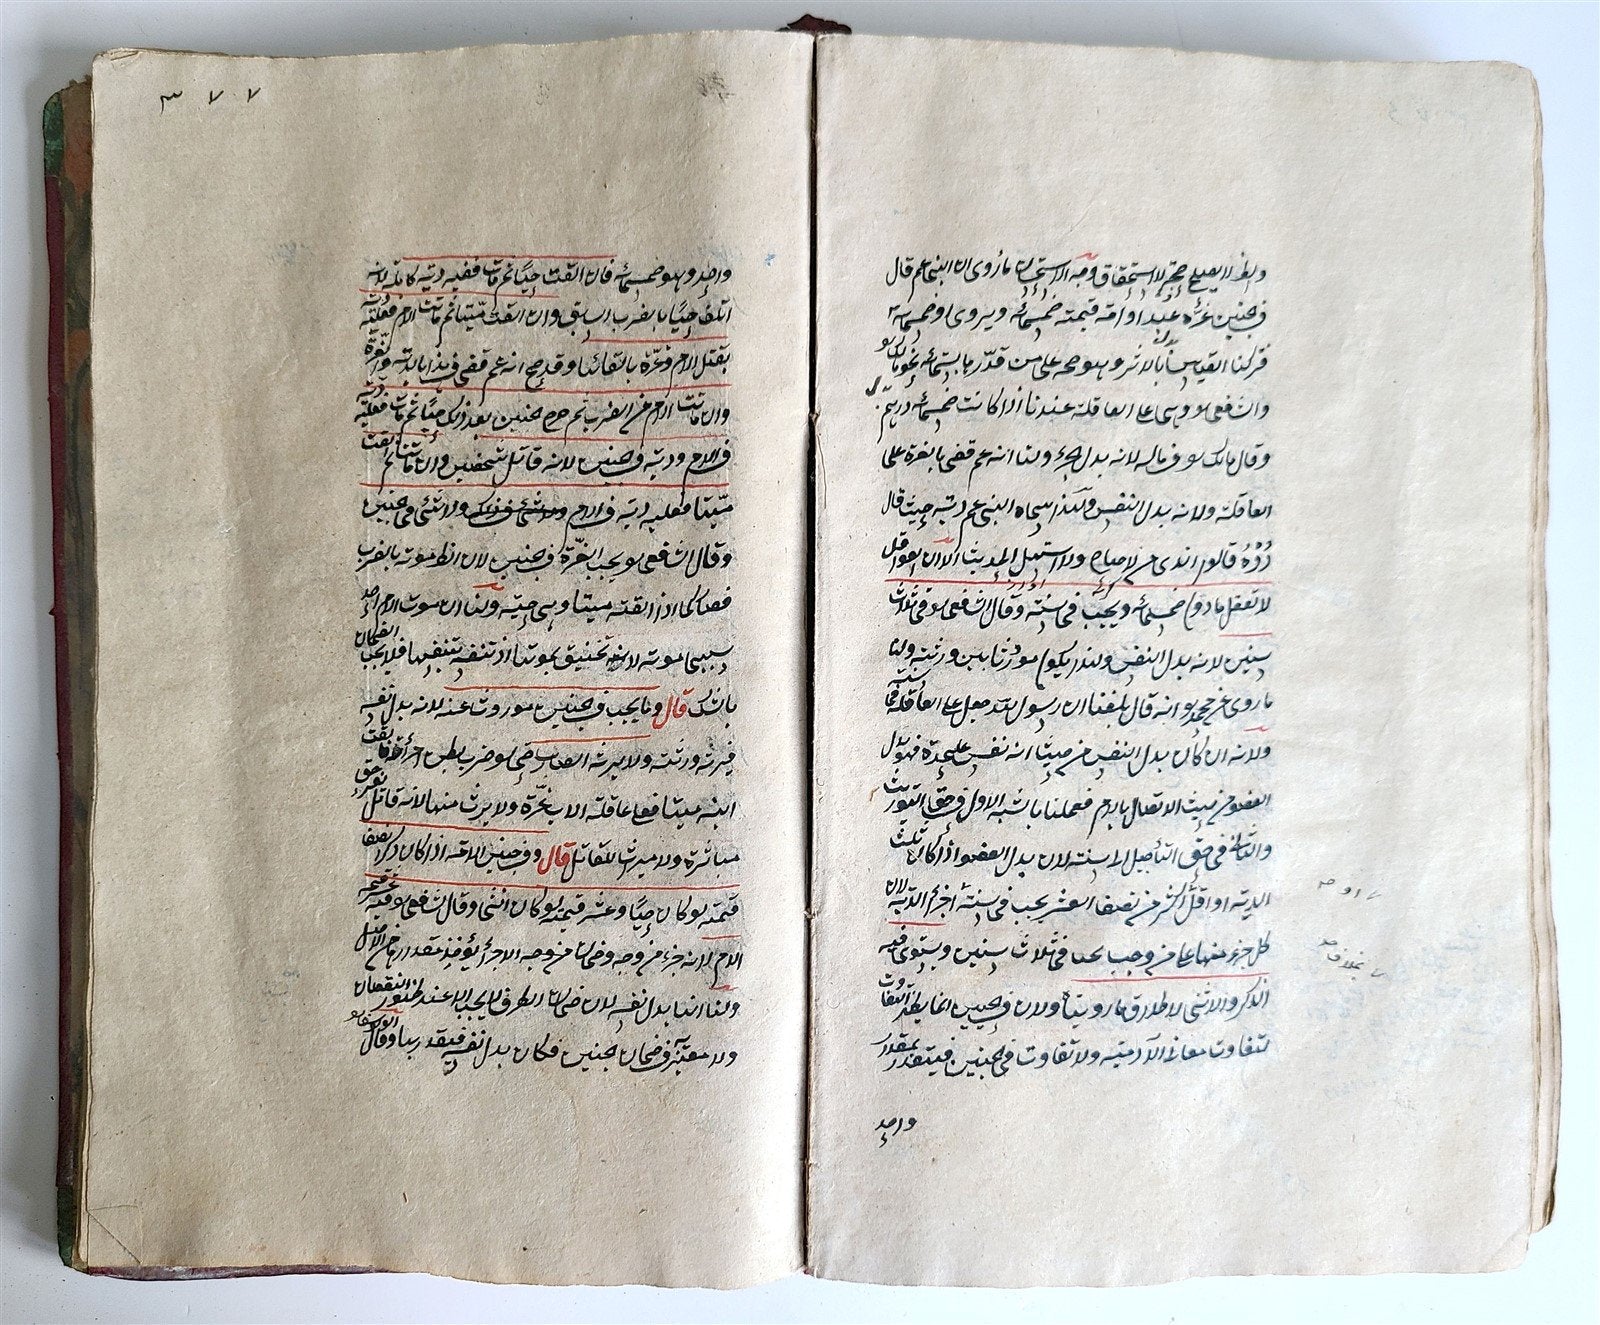 والظاهر لا يصلح حجة لاستحقاق وجه الاستحسان ما روى ان النبى عم قال
فى الجنين غرة عبد او امة قيمته خمسمائة ويروى او خمسمائة
فتركنا القياس بالاثر وهو حجة على من قدرها بستمائة نحو مالك
والشافعى وهى على العاقلة عندنا اذا كانت خمسمائة درهم
وقال مالك فى ماله لانه بدل الجزء ولنا انه عم قضى بالغرة على
العاقلة ولانه بدل النفس ولهذا سماه النبى عم دية حيث قال
دوه قالوا اندى من لا صاح ولا استهل الحديث الا ان العواقل
لا تعقل ما دون خمسمائة ويجب فى سنة وقال الشافعى فى ثلاث
سنين لانه بدل النفس ولهذا يكون موروثا بين ورثته ولنا
ما روى عن محمد انه قال بلغنا ان رسول الله جعل على العاقلة فى سنة
ولانه ان كان بدل النفس من حيث انه نفس عليحدة فهو بدل
العضو من حيث الاتصال بالام فعملنا بالشبه الاول فى حق التوريث
والثانى فى حق التأجيل الى سنة لان بدل العضو اذا كان ثلث
الدية او اقل اكثر من نصف العشر يجب فى سنة اجزاء الدية لان
كل جزء منها على من وجب يجب فى ثلاث سنين ويستوى فيه
الذكر والانثى لاطلاق ما روينا ولان فى الحيين انما يظهر التفاوت
لتفاوت معانى الآدمية ولا تفاوت فى الجنين فيتقدر بمقدار
واحد
٣٧٧
واحد وهو خمسمائة فان القت حيا ثم مات ففيه دية كاملة لانه
اتلف حيا بالضرب السابق وان القت ميتا ثم ماتت الام فعليه دية
بقتل الام وغرة بالقائها وقد صح انه عم قضى فى هذا بالدية والغرة
وان ماتت الام من الضرب ثم خرج الجنين بعد ذلك حيا ثم مات فعليه دية
فى الام ودية فى الجنين لانه قاتل شخصين وان ماتت ثم القت
ميتا فعليه دية فى الام ولا شئ فى الجنين
وقال الشافعى يجب الغرة فى الجنين لان الظاهر موته بالضرب
فصار كما اذا القته ميتا وهى حية ولنا ان موت الام احد
سببى موته لانه تختنق بموتها اذ تنفسه بتنفسها فلا يجب الضمان
بالشك قال وما يجب فى الجنين موروث عنه لانه بدل نفسه
فيرثه ورثته ولا يرثه الضارب حتى لو ضرب بطن امرأته فالقت
ابنه ميتا فعلى عاقلة الاب غرة ولا يرث منها لانه قاتل بغير حق
مباشرة ولا ميراث للقاتل قال وفى جنين الامة اذا كان ذكرا نصف
قيمته لو كان حيا وعشر قيمته لو كان انثى وقال الشافعى فيه عشر قيمة
الام لانه جزء من وجه وضمان الاجزاء يؤخذ مقدارها من الاصل
ولنا انه بدل نفسه لان ضمان الطرف لا يجب الا عند ظهور النقصان
ولا معتبر فى ضمان الجنين فكان بدل نفسه فيقدر بها وقال ابو يوسف